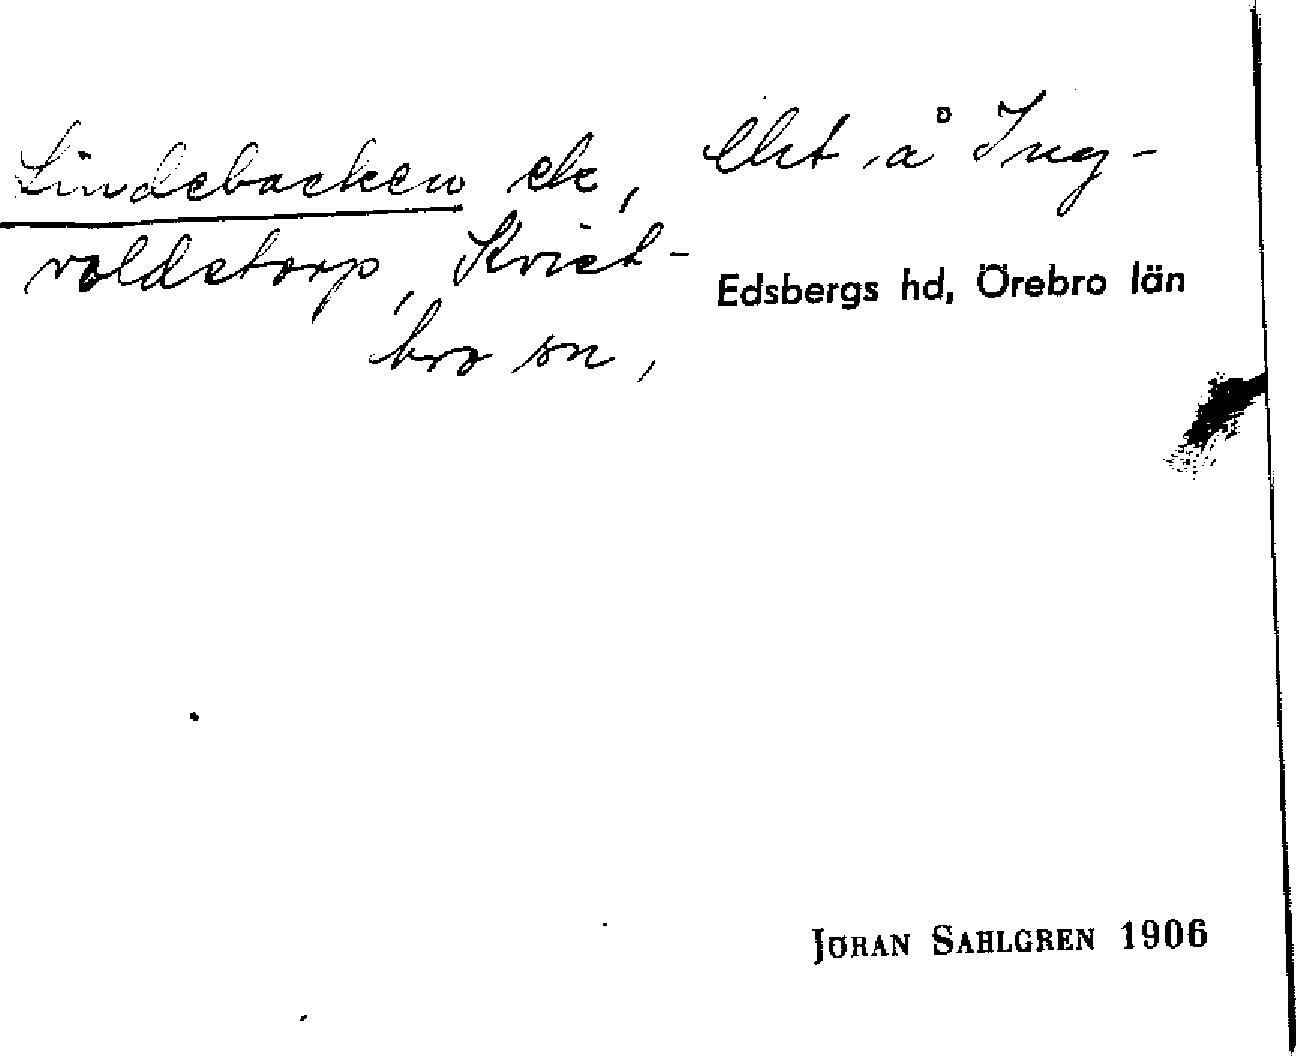 Lindebacken å Ing-
voldstorp, Kvist-
bro sn,
Edsbergs hd, Örebro län
JÖRAN SAHLGREN 1906